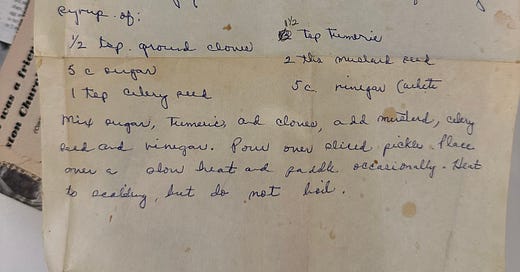 syrup of:
1/2 tsp. ground cloves
1 1/2 tsp tumeric
5 c sugar
2 tbs mustard seed
1 tsp celery seed
5 c vinegar (white
Mix sugar, tumeric, and cloves, add mustard, celery
seed and vinegar. Pour over sliced pickle. Place
over a slow heat and paddle occasionally. Heat
to scalding, but do not boil.
was a frien